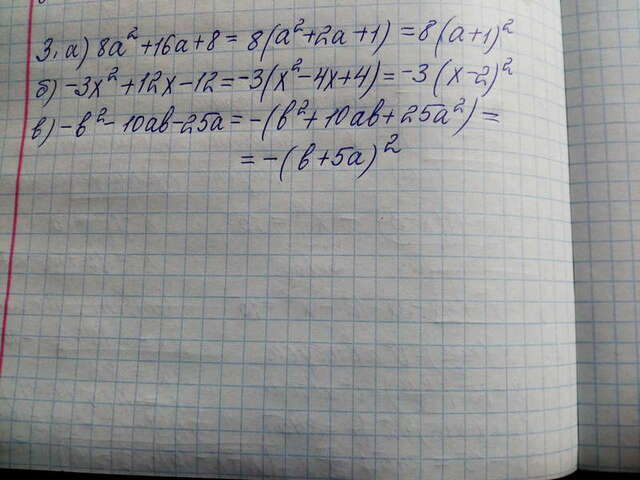 3. а) 8a² + 16a + 8 = 8(a² + 2a + 1) = 8(a+1)²
б) -3x² + 12x - 12 = -3(x² - 4x + 4) = -3(x-2)²
в) -b² - 10ab - 25a = -(b² + 10ab + 25a²) =
= -(b + 5a)²